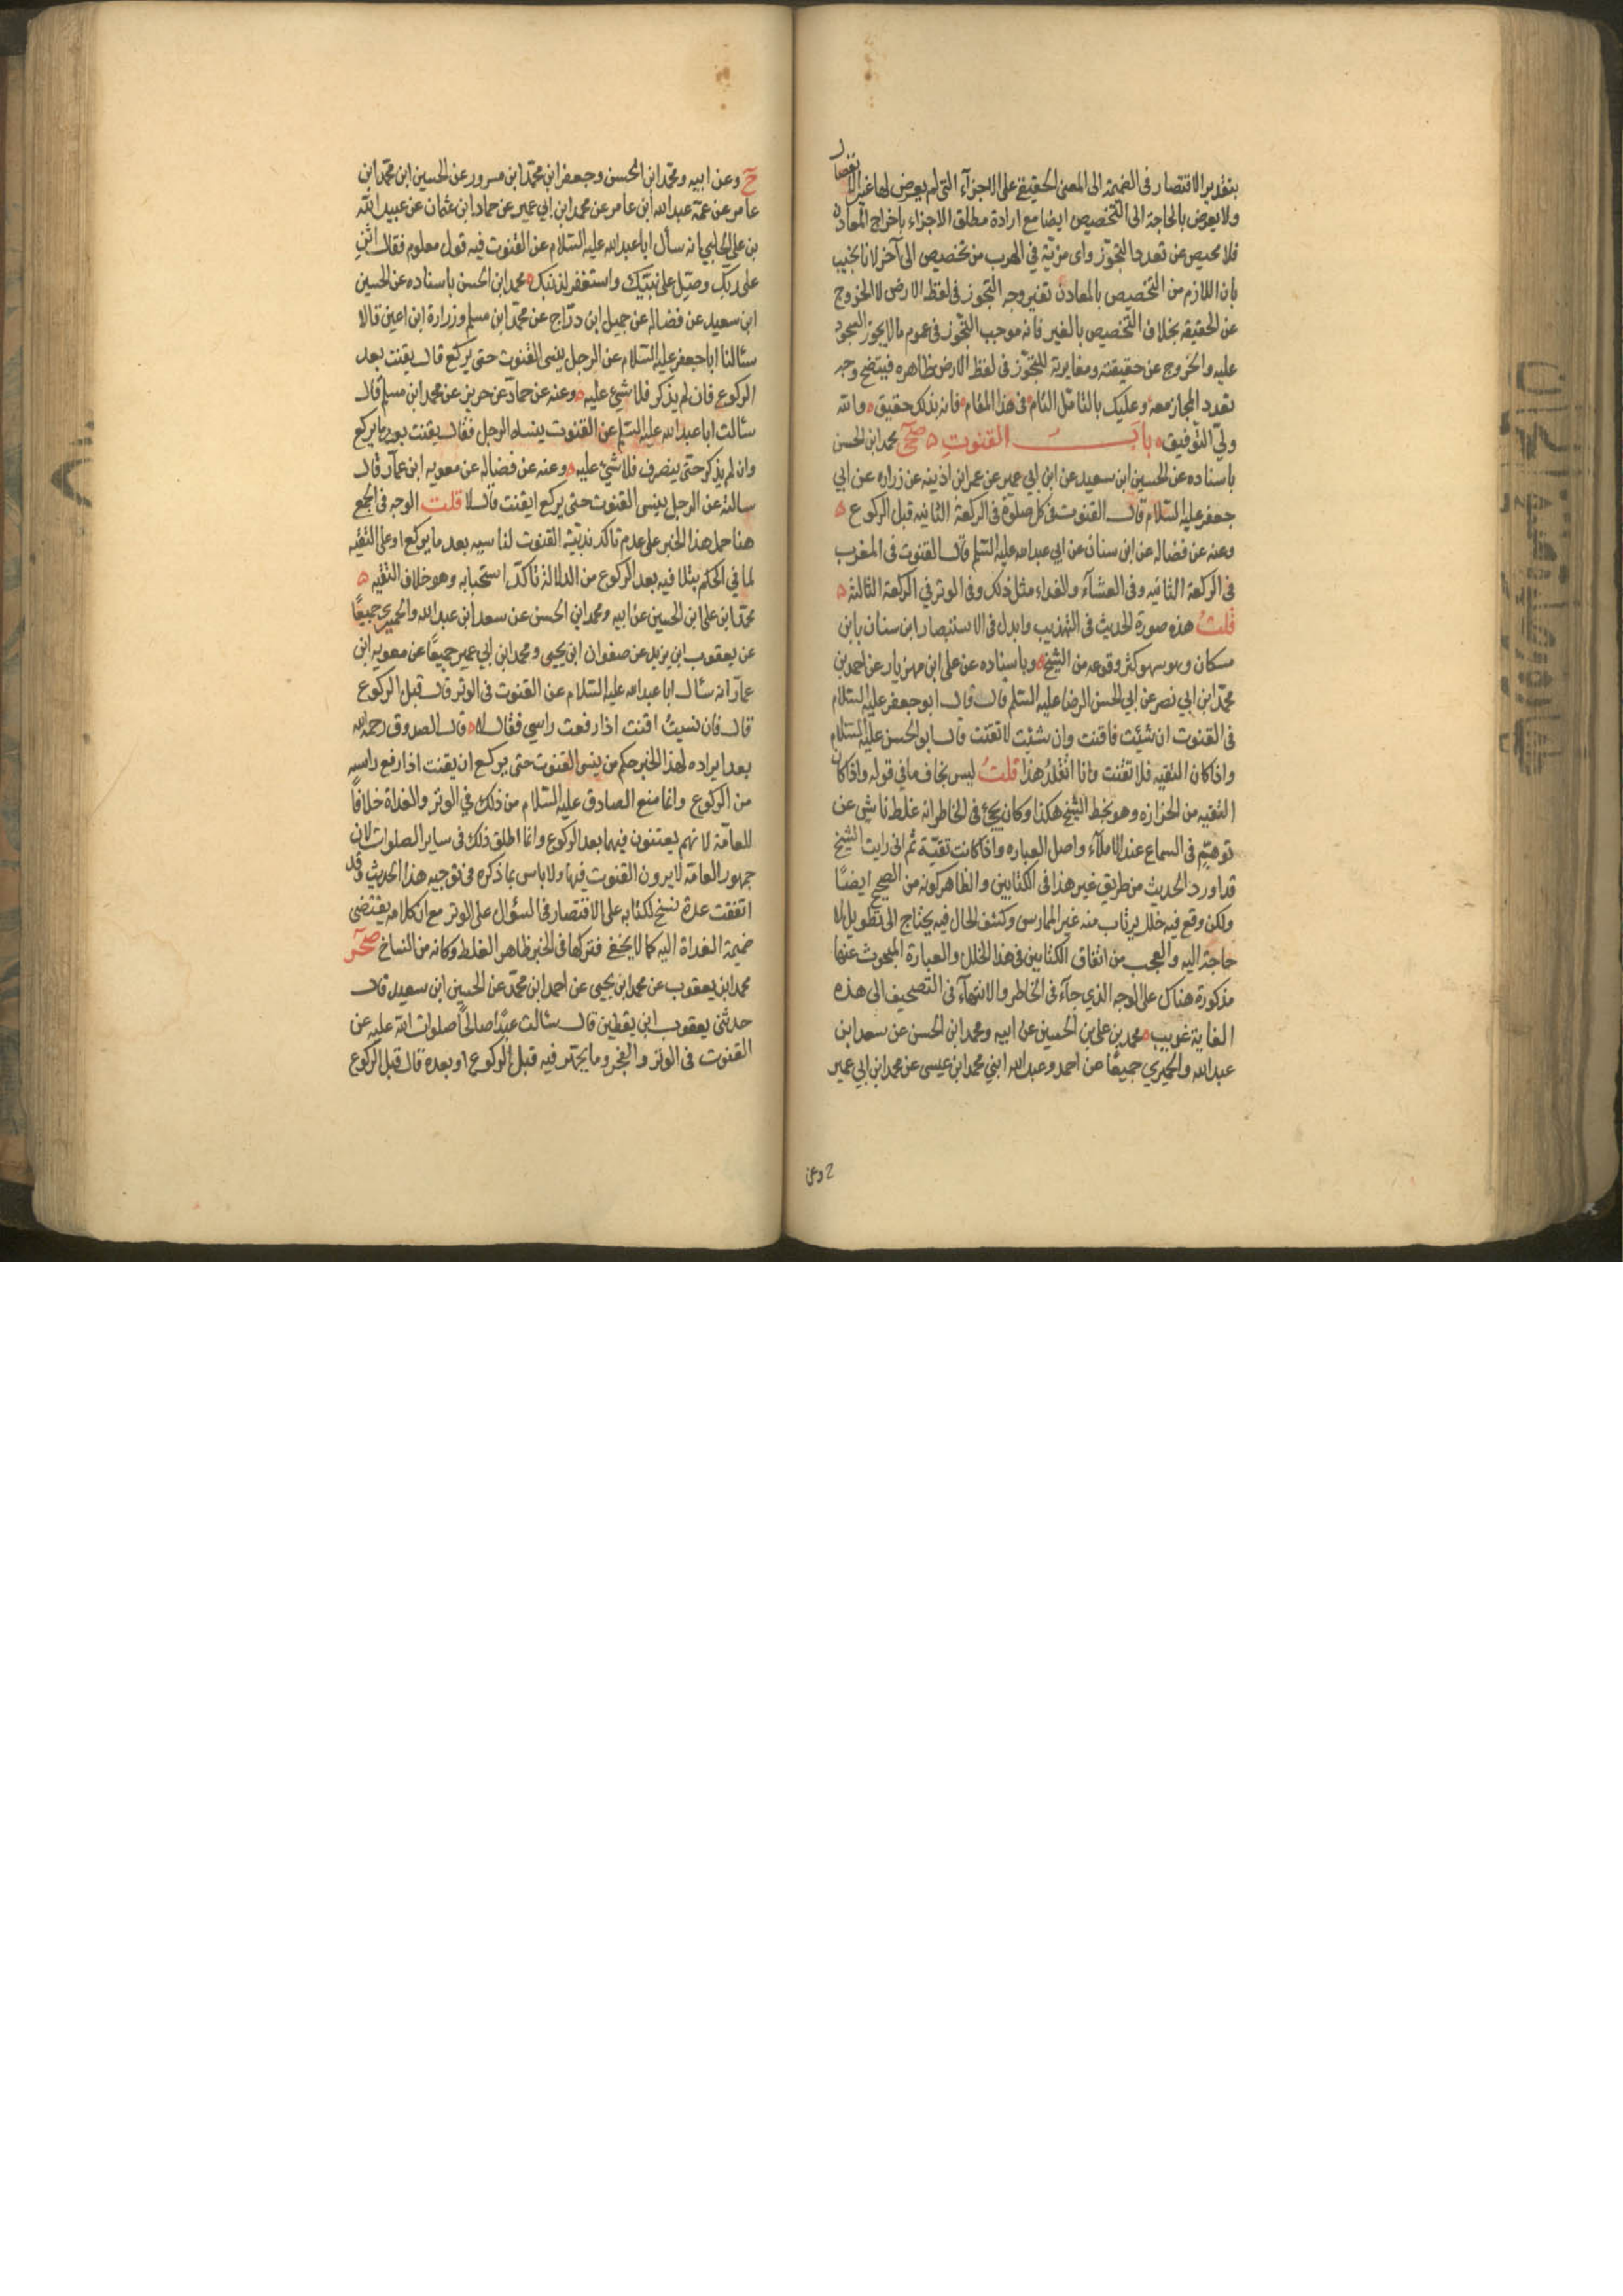 بتقدير الاقتصار في الضميمة الى المعنى الحقيقي على الاجزآء التي لم يعرض لها غير الانفصال
ولا يعرض بالحاجة الى التخصيص ايضا مع ارادة مطلق الاجزاء باخراج المعادن
فلا محيص عن تعدد التجوّز واى مزيّة في الهرب من تخصيص الى آخر لانا نجيب
بان اللازم من التخصيص بالمعادن تغير وجه التجوز في لفظ الارض لا الخروج
عن الحقيقه بخلاف التخصيص بالغير فانه موجب التجّوز في عموم ما لا يجوز السجود
عليه والخروج عن حقيقته ومغايرته للتجوّز في لفظ الارض ظاهره فيتضح وجه
تعدد المجاز معه وعليك بالتامّل التام في هذا المقام فانه بذلك حقيق والله
وليّ التوفيق باب القنوتِ صحّى محمد ابن الحسن
باسناده عن الحسين ابن سعيد عن ابن ابي عمير عن عمر ابن اذينه عن زراره عن ابي
جعفر عليه السّلام قال القنوت في كل صلوة في الركعة الثانيه قبل الركوع
وعنه عن فضاله عن ابن سنان عن ابي عبد الله عليه السّلم قال القنوت في المغرب
في الركعة الثانيه وفي العشآء والغداء مثل ذلك وفي الوتر في الركعة الثالثة
قلتُ هذه صورة الحديث في التهذيب وابدل في الاستبصار ابن سنان بابن
مسكان وهو سهو كثر وقوعه من الشيخ وباسناده عن على ابن مهزيار عن احمد بن
محمّد ابن ابي نصر عن ابي الحسن الرضا عليه السّلم قال قال ابو جعفر عليه السّلام
في القنوت ان شئت فاقنت وان شئت لا تقنت قال ابو الحسن عليه السّلام
واذا كان التقيه فلا تقنت وانا اتقلّد هذا قلتُ ليس بخاف ما في قوله واذا كان
التقيه من الحزازه وهو بخط الشيخ هكذا وكان يجئ في الخاطر انه غلط ناشي عن
توهّم في السماع عند الاملآء واصل العباره واذا كانت تقيّة ثم انى رايت الشيخ
قد اورد الحديث من طريق غير هذا في الكتابين والظاهر كونه من الصحيح ايضًا
ولكن وقع فيه خلل يرتاب منه غير الممارس وكشف الحال فيه يحتاج الى تطويل لا
حاجة اليه والعجب من اتفاق الكتابين في هذا الخلل والعبارة المبحوث عنها
مذكورة هناك على الوجه الذي جآء في الخاطر والانتهآء في التصحيف الى هذه
الغاية غريب محمد بن على بن الحسين عن ابيه ومحمد ابن الحسن عن سعد ابن
عبد الله والحميري جميعًا عن احمد وعبد الله ابني محمد ابن عيسى عن محمد ابن ابي عمير
وعن
حّ وعن ابيه ومحمّد ابن الحسن وجعفر ابن محمّد ابن مسرور عن الحسين ابن محمّد ابن
عامر عن عمّه عبد الله ابن عامر عن محمد ابن ابي عمير عن حماد ابن عثمان عن عبيد الله
بن على الحلبي انه سأل ابا عبد الله عليه السّلام عن القنوت فيه قول معلوم فقال اثنِ
على ربّك وصلّ على نبيّك واستغفر لذنبك محمد ابن الحسن باسناده عن الحسين
ابن سعيد عن فضاله عن جميل ابن درّاج عن محمّد ابن مسلم وزرارة ابن اعين قالا
سئالنا ابا جعفر عليه السّلام عن الرجل ينسى القنوت حتى يركع قال يقنت بعد
الركوع فان لم يذكر فلا شيئ عليه وعنه عن حمآد عن حريز عن محمد ابن مسلم قال
سئالت ابا عبد الله عليه السّلم عن القنوت ينساه الرجل فقال يقنت بعد ما يركع
وان لم يذكر حتى ينصرف فلا شئ عليه وعنه عن فضاله عن معويه ابن عمآر قال
سالته عن الرجل ينسى القنوت حتى يركع ايقنت قال لا قلت الوجه في الجمع
هنا حمل هذا الخبر على عدم تاكد ندبيّة القنوت لناسيه بعد ما يركع او على التقيه
لما في الحكم بتلافيه بعد الركوع من الدلالة تاكّد استحبابه وهو خلاف التقيه
محمّد ابن على ابن الحسين عن ابيه ومحمد ابن الحسن عن سعد ابن عبد الله والحميرى جميعًا
عن يعقوب ابن يزيد عن صفوان ابن يحيى ومحمد ابن ابي عمير جميعًا عن معويه ابن
عمار انه سئال ابا عبد الله عليه السّلام عن القنوت في الوتر قال قبل الركوع
قال فان نسيتُ اقنت اذا رفعت راسي فقال لا قال الصدوق رحمه الله
بعد ايراده لهذا الخبر حكم من ينسى القنوت حتى يركع ان يقنت اذا رفع راسه
من الركوع وانما منع الصادق عليه السّلام من ذلك في الوتر والغداة خلافًا
للعامّة لانهم يقنتون فيهما بعد الركوع وانما اطلق ذلك في ساير الصلوات لان
جمهور العامّة لا يرون القنوت فيها ولا باس بما ذكره في توجيه هذا الحديث وقد
اتفقت عدة نسخ لكتابه على الاقتصار في السؤال على الوتر مع ان كلامه يقتضى
ضميمة الغداة اليه كما لا يخفى فتركها في الخبر ظاهر الغلط وكانه من النساخ صحّر
محمد ابن يعقوب عن محمد ابن يحيى عن احمد ابن محمّد عن الحسين ابن سعيد قال
حدثنى يعقوب ابن يقطين قال سئالت عبدًا صالحًا صلوات الله عليه عن
القنوت في الوتر والفجر وما يجهر فيه قبل الركوع او بعده قال قبل الركوع